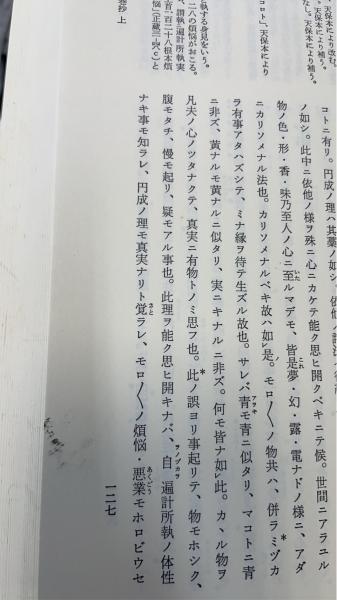 コトニ有リ。円成ノ理ハ其薬ノ如シ。
ノ如シ。此中ニ依他ノ様ヲ殊ニ心ニカケテ能ク思ヒ開クベキニテ候。世間ニアラユル
物ノ色・形・香・味乃至人ノ心ニ至ルマデモ、皆是夢・幻・露・電ナドノ様ニ、アダ
ニカリソメナル法也。カリソメナルベキ故ハ如レ是。モロ〳〵ノ物共ハ、併ラミヅカ
ラ有事アタハズシテ、ミナ縁ヲ待テ生ズル故也。サレバ青モ青ニ似タリ、マコトニ青
ニ非ズ、黄ナルモ黄ナルニ似タリ、実ニキナルニ非ズ。何モ皆ナ如レ此。カヽル物ヲ
凡夫ノ心ノツタナクテ、真実ニ有物トノミ思フ也。此ノ誤ヨリ事起リテ、物モホシク、
腹モタチ、慢モ起リ、疑モアル事也。此理ヲ能ク思ヒ開キナバ、自遍計所執ノ体性
ナキ事モ知ラレ、円成ノ理モ真実ナリト覚ラレ、モロ〳〵ノ煩悩・悪業モホロビウセ
一二七
天保本により改む。
天保本により補う。
コロト」、天保本により
と執する身見をいう。
二八の煩悩がおこる。
巻抄 上